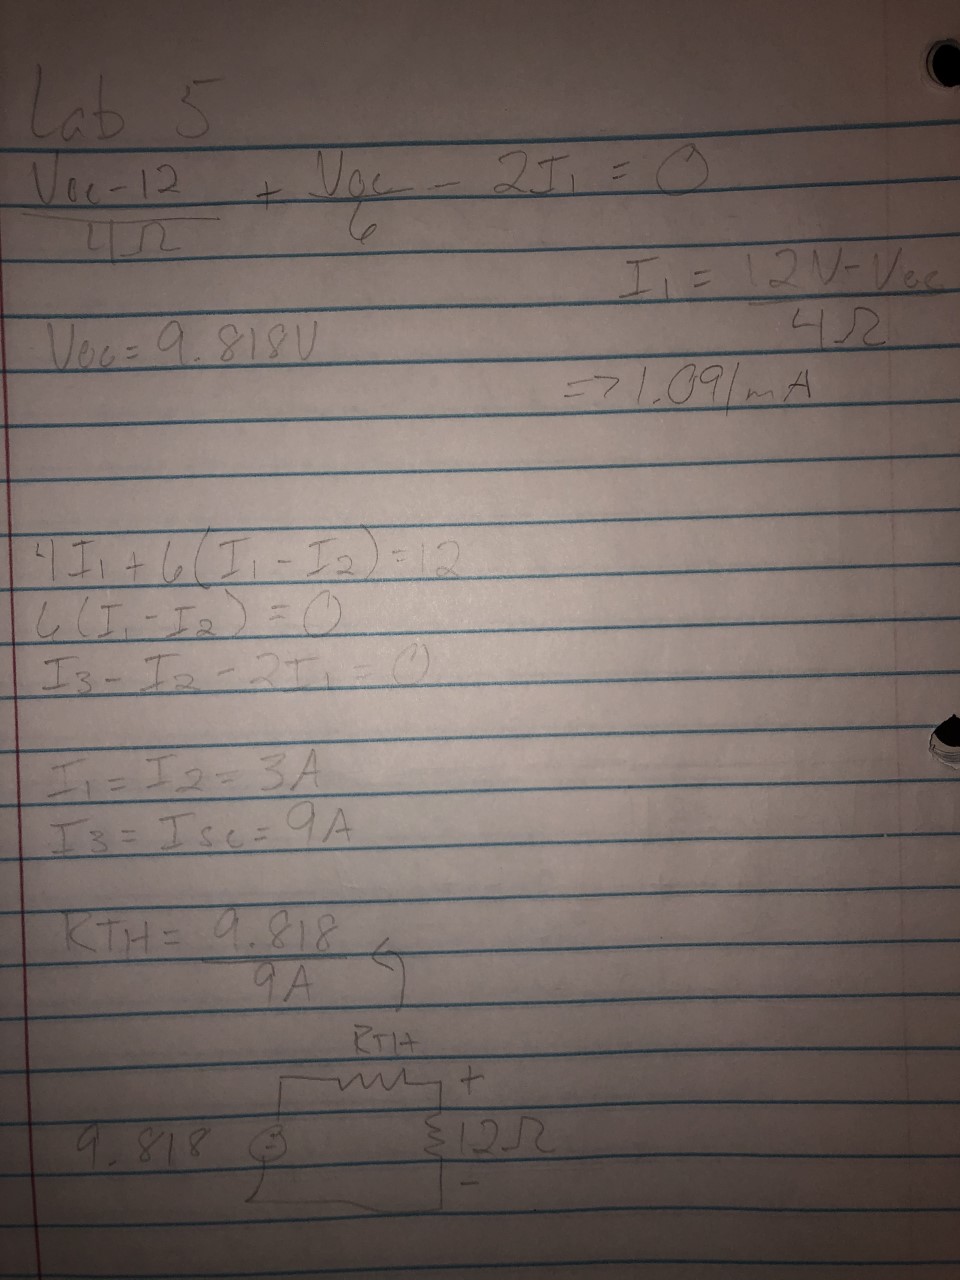 Lab 5
Voc - 12 / 4Ω + Voc / 6 - 2I₁ = 0
I₁ = 12V - Voc / 4Ω
Voc = 9.818V
=> 1.091mA
4I₁ + 6(I₁ - I₂) = 12
6(I₁ - I₂) = 0
I₃ - I₂ - 2I₁ = 0
I₁ = I₂ = 3A
I₃ = Isc = 9A
RTH = 9.818 / 9A
RTH
+
9.818
12Ω
-